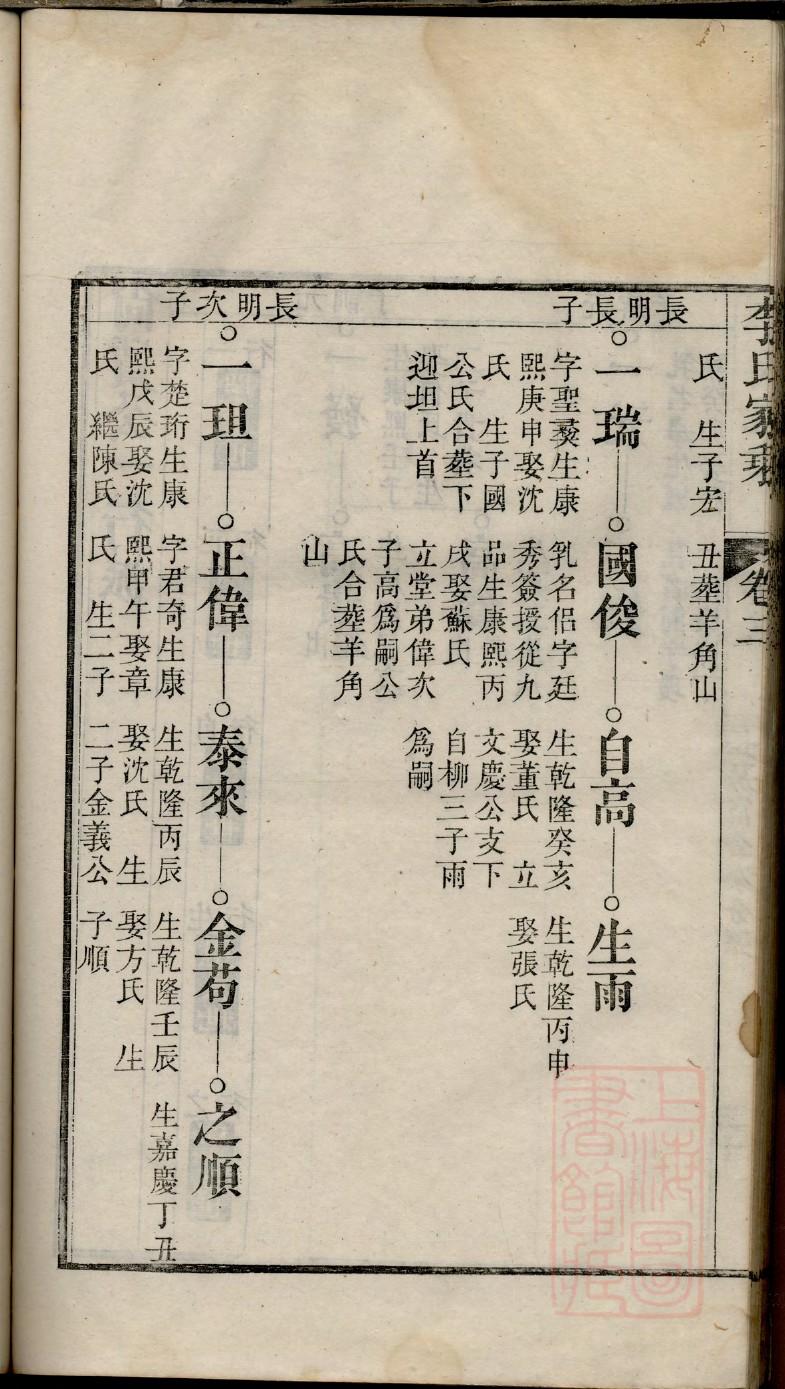 李氏家乘
卷三
氏　生子宏
丑葬羊角山
長明長子
一瑞
字聖 生康
熙庚申娶沈
氏　生子國
公氏合葬下
迎坦上首
國俊
乳名侶字廷
秀簽授從九
品生康熙丙
戌娶蘇氏
立堂弟偉次
子高爲嗣公
氏合葬羊角
山
自高
生乾隆癸亥
娶董氏　立
文慶公支下
自柳三子雨
爲嗣
生雨
生乾隆丙申
娶張氏
長明次子
一珇
字楚珩生康
熙戊辰娶沈
氏　繼陳氏
正偉
字君奇生康
熙甲午娶章
氏　生二子
泰來
生乾隆丙辰
娶沈氏　生
二子金義公
金苟
生乾隆壬辰
娶方氏　生
子順
之順
生嘉慶丁丑
上海圖書館藏